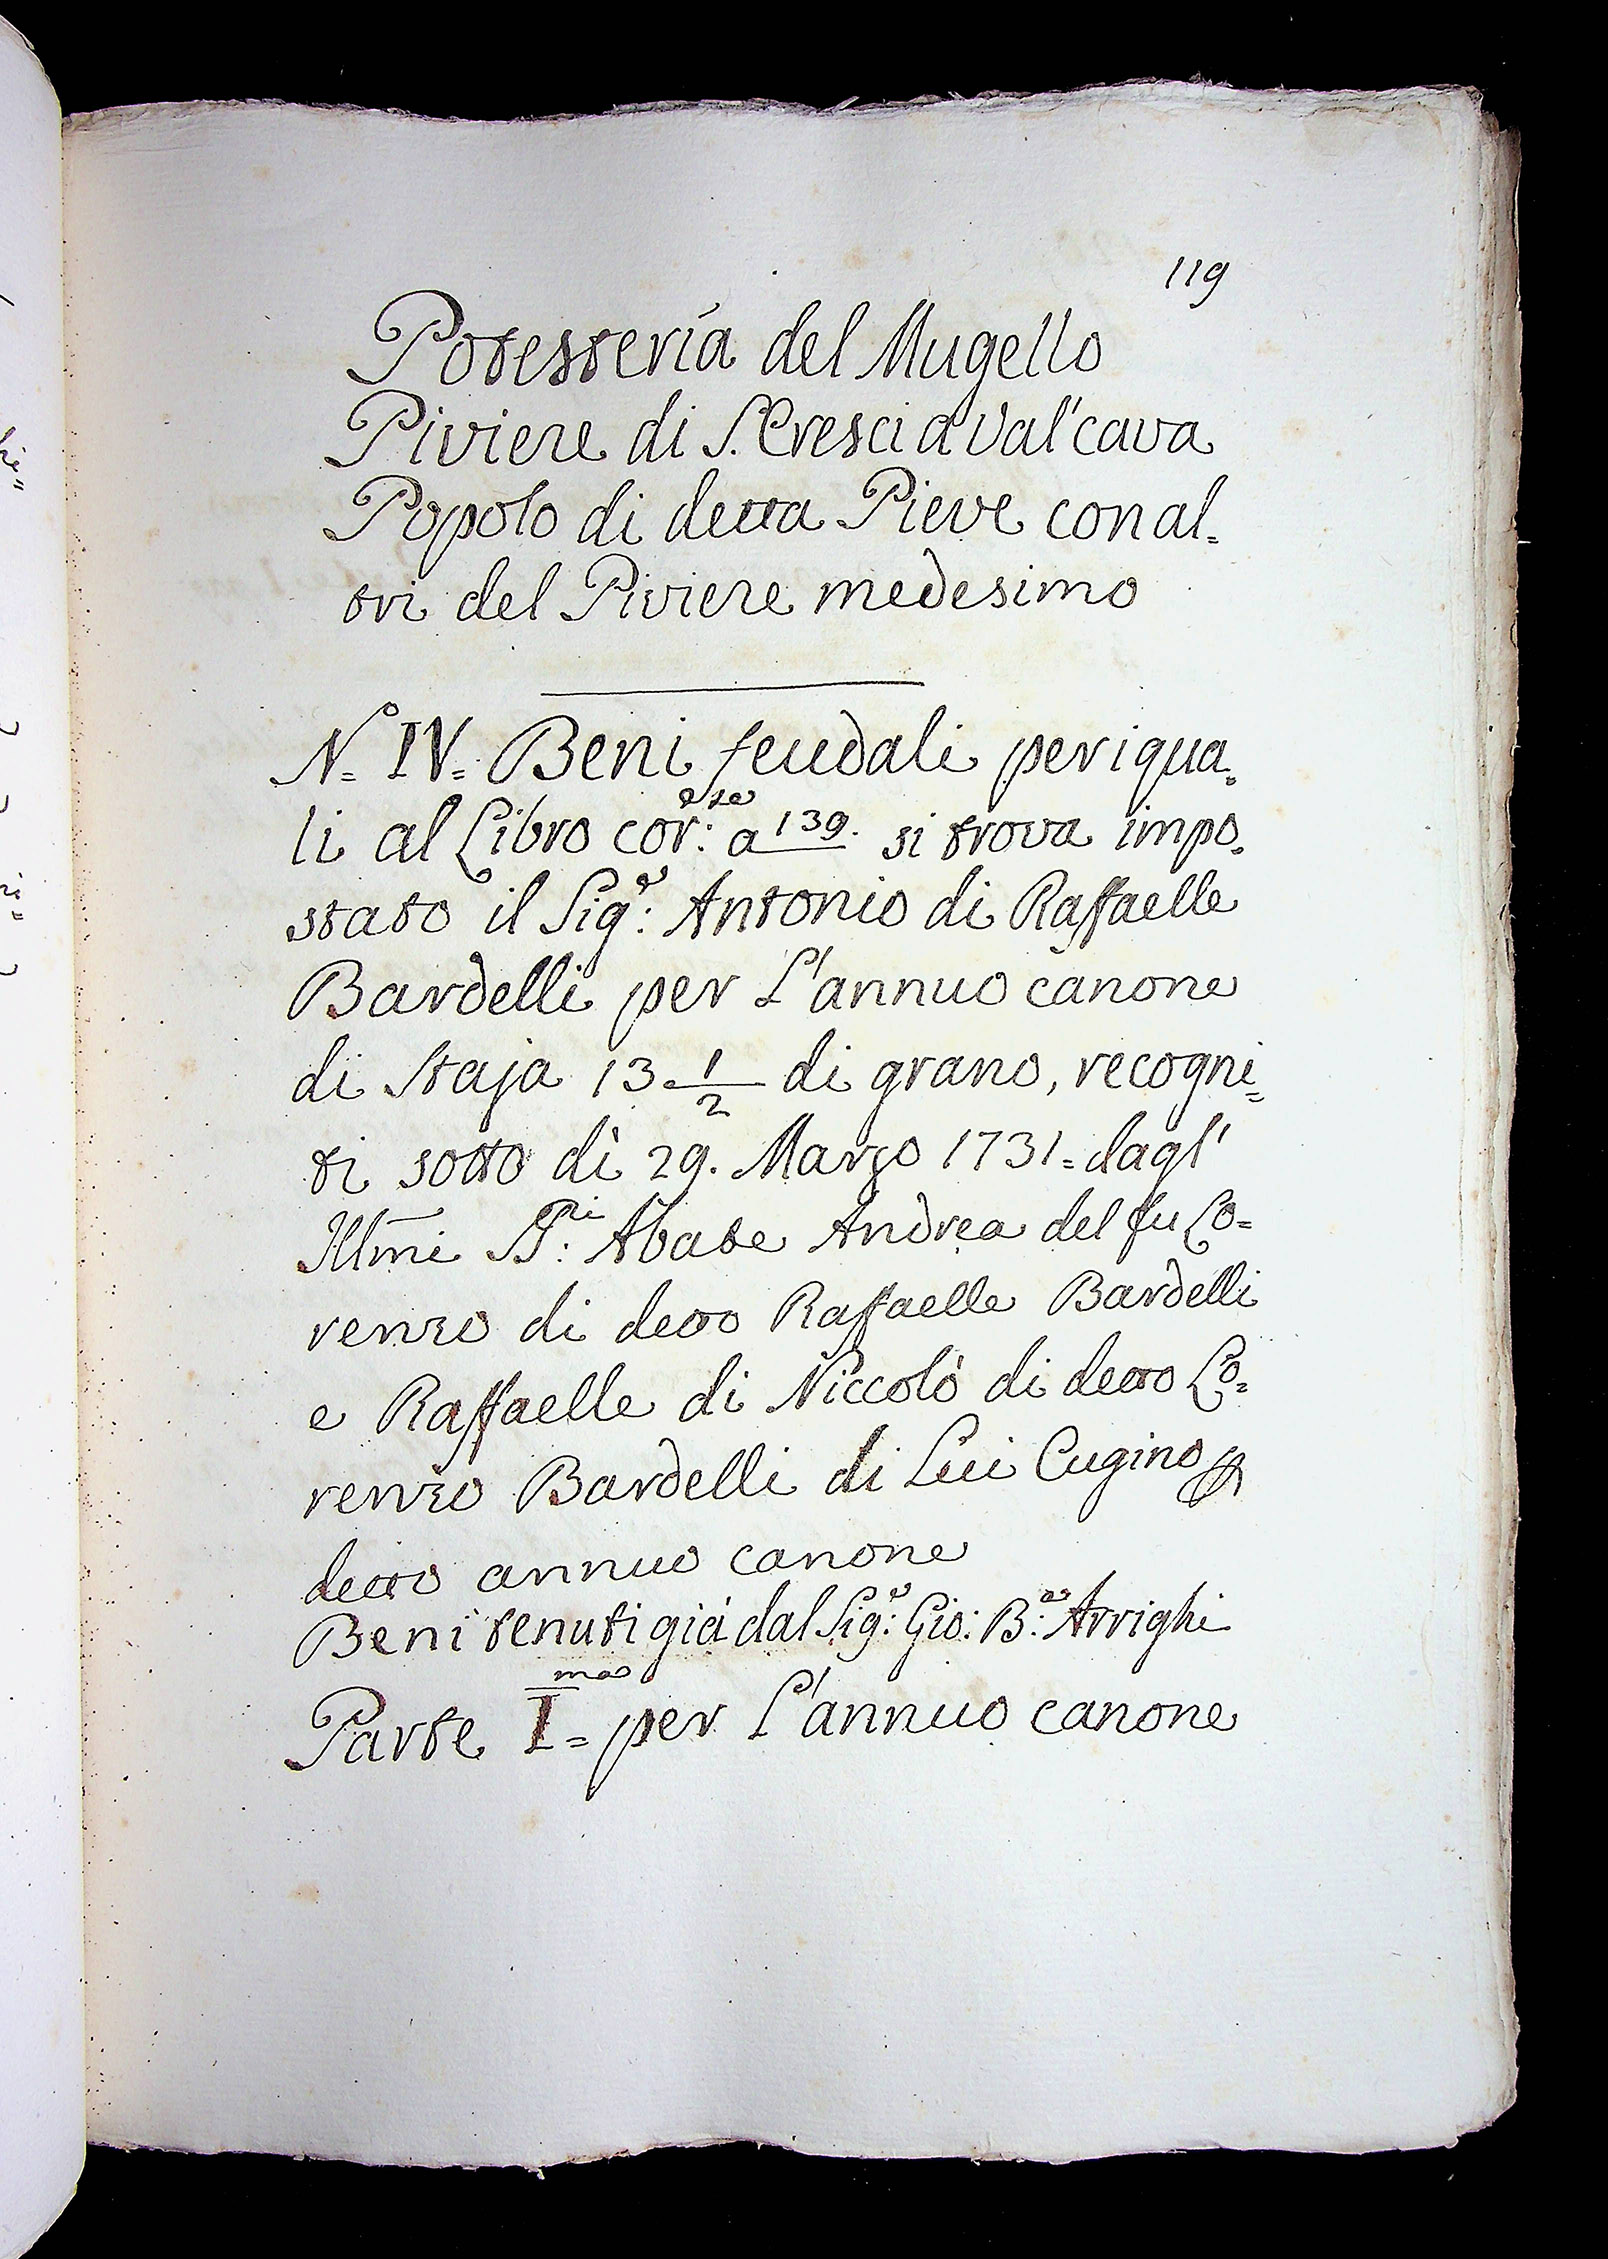 119
Potesteria del Mugello
Piviere di S. Cresci a Val'cava
Popolo di detta Pieve con al=
tri del Piviere medesimo
N.º IV= Beni feudali per i qua=
li al Libro cor:te a 139. si trova impo=
stato il Sig:e Antonio di Raffaelle
Bardelli per L'annuo canone
di Staja 13 1/2 di grano, recogni=
ti sotto dì 29. Marzo 1731= dagl'
Illmi SS:ri Abate Andrea del fu Lo=
renzo di detto Raffaelle Bardelli
e Raffaelle di Niccolò di detto Lo=
renzo Bardelli di Lui Cugino p
detto annuo canone
Beni tenuti già dal Sig:e Gio: B:a Arrighi
Parte I=ma per L'annuo canone